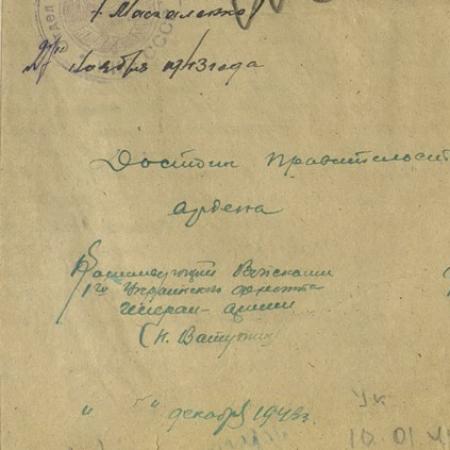 / Москаленко /
" ноября 1943 года
Достоин правительст
ордена
Командующий Войсками
1го Украинского фронта
генерал-армии
(Н. Ватутин
" " декабря 1943г.
Ук
10.01.44